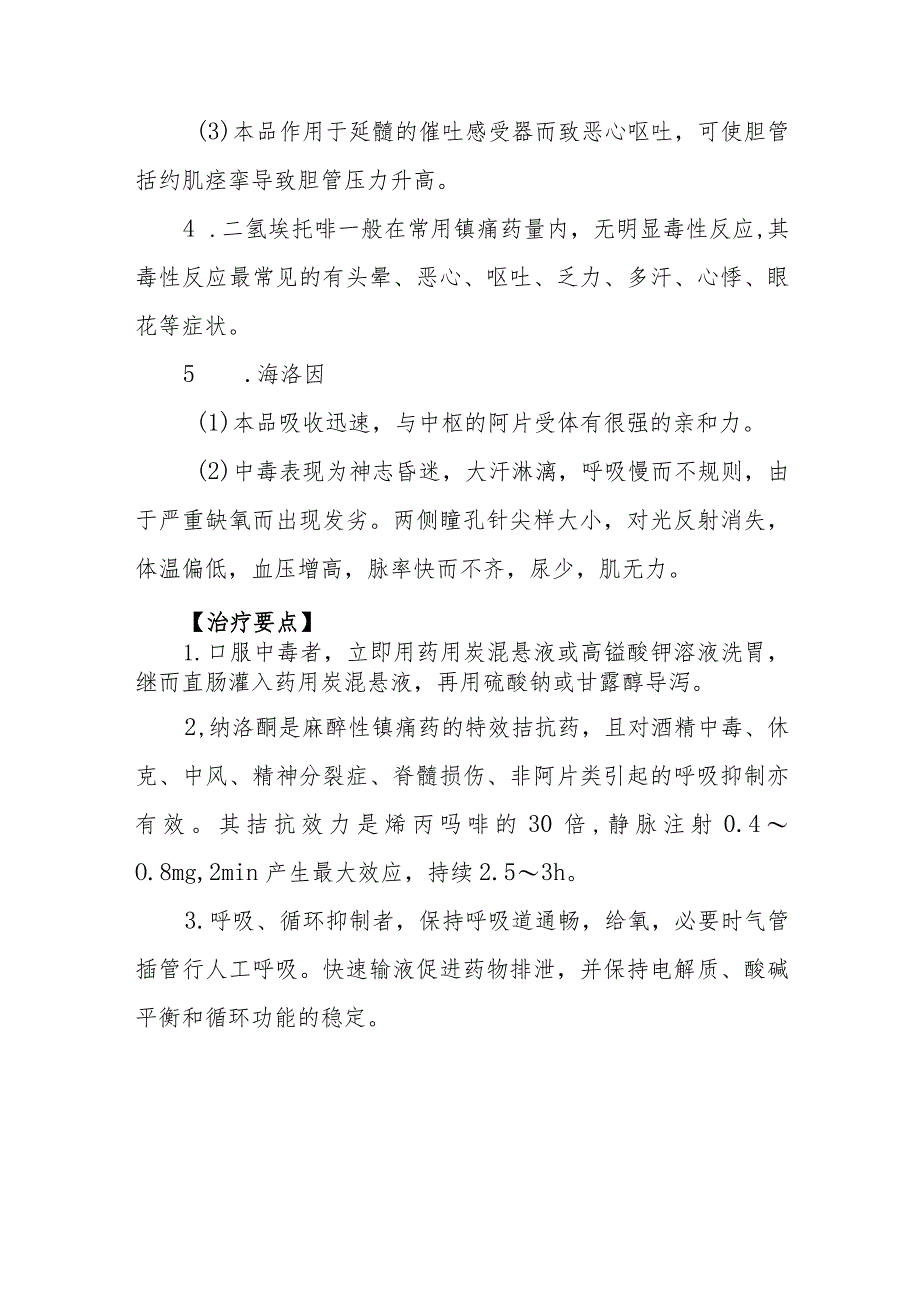 (3)本品作用于延髓的催吐感受器而致恶心呕吐，可使胆管
括约肌痉挛导致胆管压力升高。
4 .二氢埃托啡一般在常用镇痛药量内，无明显毒性反应,其
毒性反应最常见的有头晕、恶心、呕吐、乏力、多汗、心悸、眼
花等症状。
5 .海洛因
(1)本品吸收迅速，与中枢的阿片受体有很强的亲和力。
(2)中毒表现为神志昏迷，大汗淋漓，呼吸慢而不规则，由
于严重缺氧而出现发劣。两侧瞳孔针尖样大小，对光反射消失，
体温偏低，血压增高，脉率快而不齐，尿少，肌无力。
【治疗要点】
1.口服中毒者，立即用药用炭混悬液或高镒酸钾溶液洗胃，
继而直肠灌入药用炭混悬液，再用硫酸钠或甘露醇导泻。
2,纳洛酮是麻醉性镇痛药的特效拮抗药，且对酒精中毒、休
克、中风、精神分裂症、脊髓损伤、非阿片类引起的呼吸抑制亦
有效。其拮抗效力是烯丙吗啡的 30 倍,静脉注射 0.4～
0.8mg,2min 产生最大效应，持续 2.5～3h。
3.呼吸、循环抑制者，保持呼吸道通畅，给氧，必要时气管
插管行人工呼吸。快速输液促进药物排泄，并保持电解质、酸碱
平衡和循环功能的稳定。